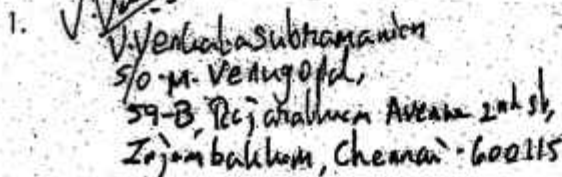 1. V.V
V.Venkatasubramanian
S/o M. Venugopal,
59-B, Rajarathnam Avenue 2nd st,
Injambakkam, Chennai - 600115